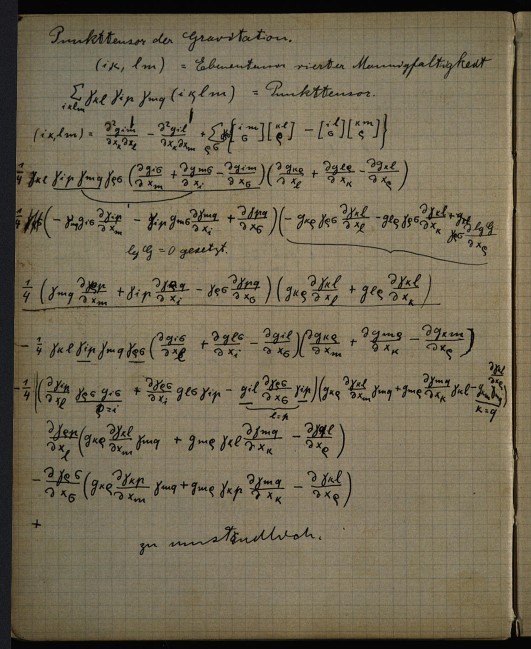 Punkttensor der Gravitation.
(iκ, lm) = Ebenentensor vierter Mannigfaltigkeit
∑_{iκlm} γκl γip γmq (iκlm) = Punkttensor.
(iκ,lm) = ∂²gim/∂xκ∂xl − ∂²gil/∂xκ∂xm + ∑_{ϱσ} {[im σ][κl ϱ] − [il σ][κm ϱ]}
1/4 γκl γip γmq γϱσ (∂giσ/∂xm + ∂gmσ/∂xi − ∂gim/∂xσ)(∂gκϱ/∂xl + ∂glϱ/∂xκ − ∂gκl/∂xϱ)
1/4 (− γmq giσ ∂γip/∂xm − γip gmσ ∂γmq/∂xi + ∂γpq/∂xσ)(− gκϱ γϱσ ∂γκl/∂xl − glϱ γϱσ ∂γκl/∂xκ + γϱσ ∂lgG/∂xϱ)
lg G = 0 gesetzt.
1/4 (γmq ∂γϱp/∂xm + γip ∂γϱq/∂xi − γϱσ ∂γpq/∂xσ)(gκϱ ∂γκl/∂xl + glϱ ∂γκl/∂xκ)
− 1/4 γκl γip γmq γϱσ (∂giσ/∂xl + ∂glσ/∂xi − ∂gil/∂xσ)(∂gκϱ/∂xm + ∂gmϱ/∂xκ − ∂gκm/∂xϱ)
− 1/4 (∂γip/∂xl γϱσ giσ + ∂γϱσ/∂xi glσ γip − gil ∂γϱσ/∂xσ γip)(gκϱ ∂γκl/∂xm γmq + gmϱ ∂γmq/∂xκ γκl −
ϱ=i κ=q
∂γϱp/∂xl (gκϱ ∂γκl/∂xm γmq + gmϱ γκl ∂γmq/∂xκ − ∂γql/∂xϱ)
− ∂γϱσ/∂xσ (gκϱ ∂γκp/∂xm γmq + gmϱ γκp ∂γmq/∂xκ − ∂γκl/∂xϱ)
+
zu umständlich.